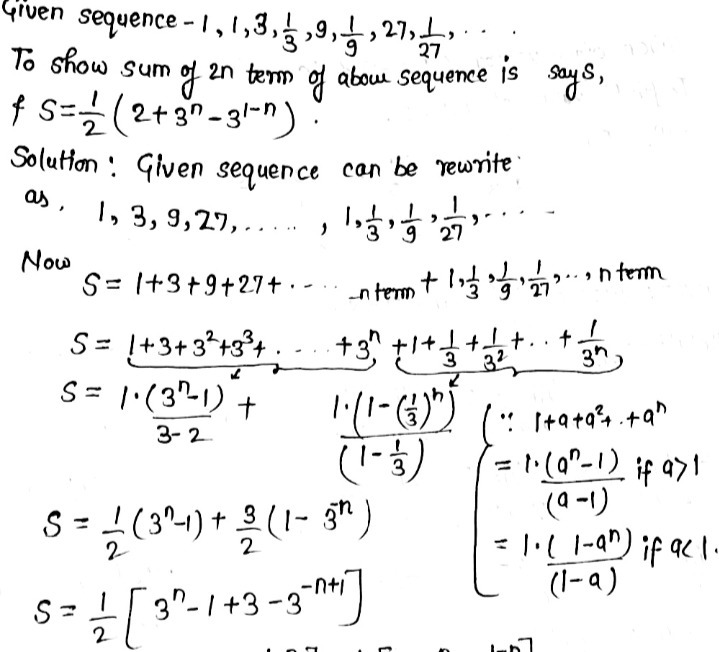 Given sequence - 1, 1, 3, 1/3, 9, 1/9, 27, 1/27, ....
To show sum of 2n term of above sequence is say S,
f S = 1/2 (2 + 3^n - 3^(1-n)).
Solution : Given sequence can be rewrite
as, 1, 3, 9, 27, ....., 1, 1/3, 1/9, 1/27, ....
Now
S = 1+3+9+27+.... n term + 1, 1/3, 1/9, 1/27, .., n term
S = 1+3+3^2+3^3+.....+3^n + 1 + 1/3 + 1/3^2 + .. + 1/3^n,
S = 1·(3^n-1)/(3-2) + 1·(1-(1/3)^n)/(1-1/3)
(∵ 1+a+a^2+..+a^n
= 1·(a^n-1)/(a-1) if a>1
= 1·(1-a^n)/(1-a) if a<1.
S = 1/2 (3^n-1) + 3/2 (1-3^-n)
S = 1/2 [3^n-1+3-3^(-n+1)]